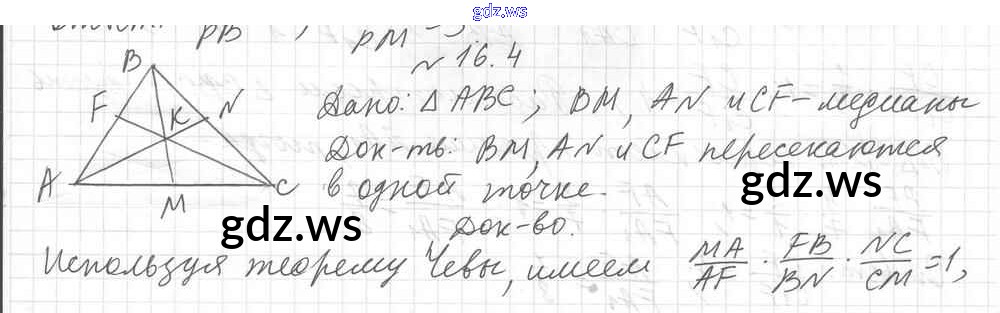 gdz.ws
PB , PM = 3,
№ 16.4
B
F
K
N
A
M
C
Дано: △ ABC; BM, AN и CF – медианы
Док-ть: BM, AN и CF пересекаются
в одной точке.
gdz.ws
gdz.ws
Док-во.
Используя теорему Чевы, имеем MA/AF · FB/BN · NC/CM = 1,